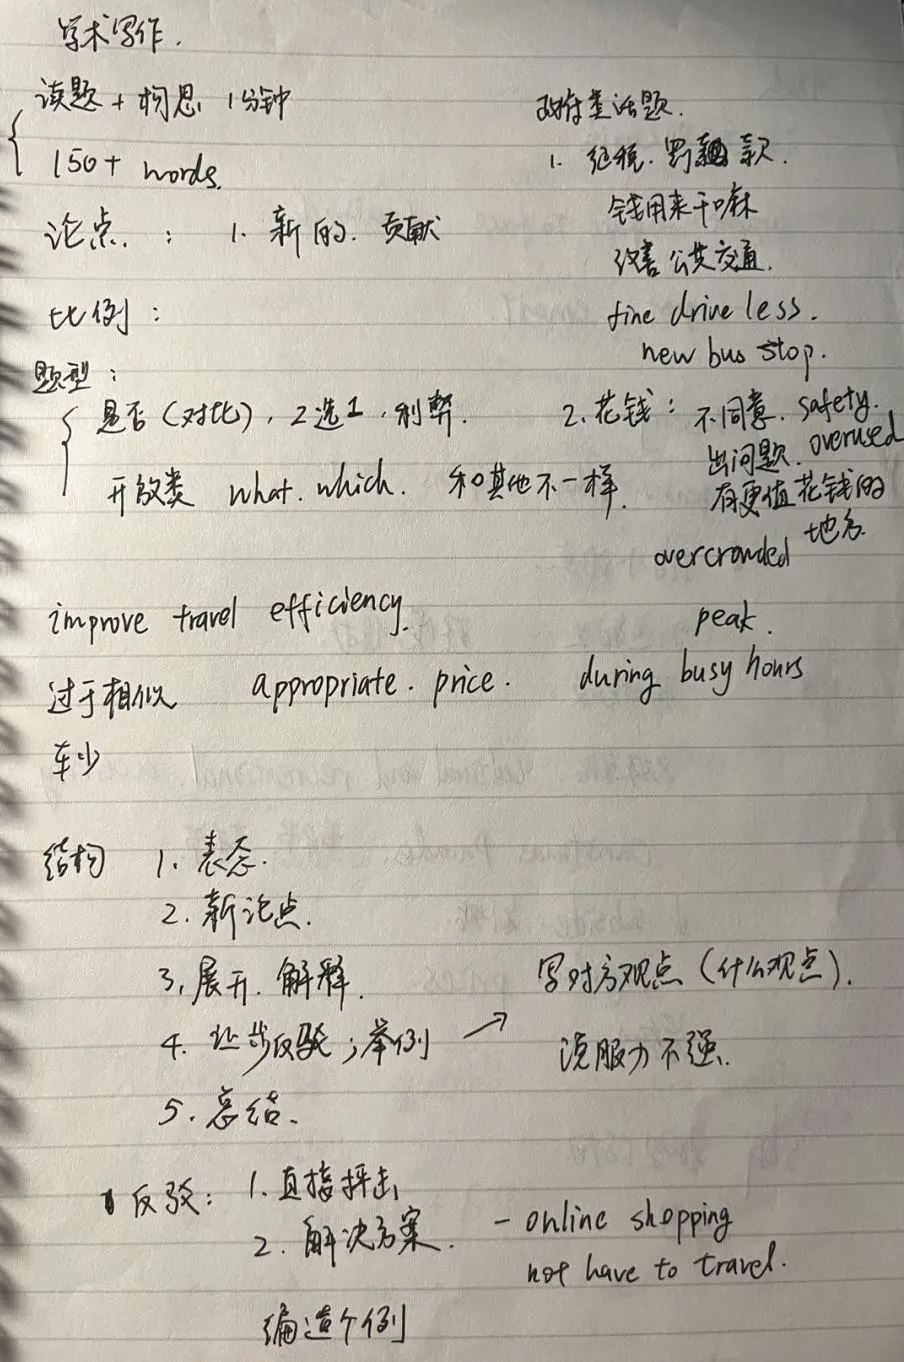 学术写作.
读题 + 构思 1分钟
150+ words.
论点. : 1. 新的. 贡献
比例:
题型:
是否(对比), 2选1, 利弊.
开放类 what. which. 和其他不一样.
政府类话题.
1. 征税. 罚款.
钱用来干嘛
改善公共交通.
fine drive less.
new bus stop.
2. 花钱: 不同意. safety.
出问题. overused
有更值花钱的
地方.
overcrowded
improve travel efficiency.
peak.
过于相似 appropriate. price. during busy hours
车少
结构 1. 表态.
2. 新论点.
3. 展开. 解释.
4. 让步反驳; 举例 → 写对方观点(什么观点).
说服力不强.
5. 总结.
反驳: 1. 直接抨击
2. 解决方案. - online shopping
not have to travel.
编造个例